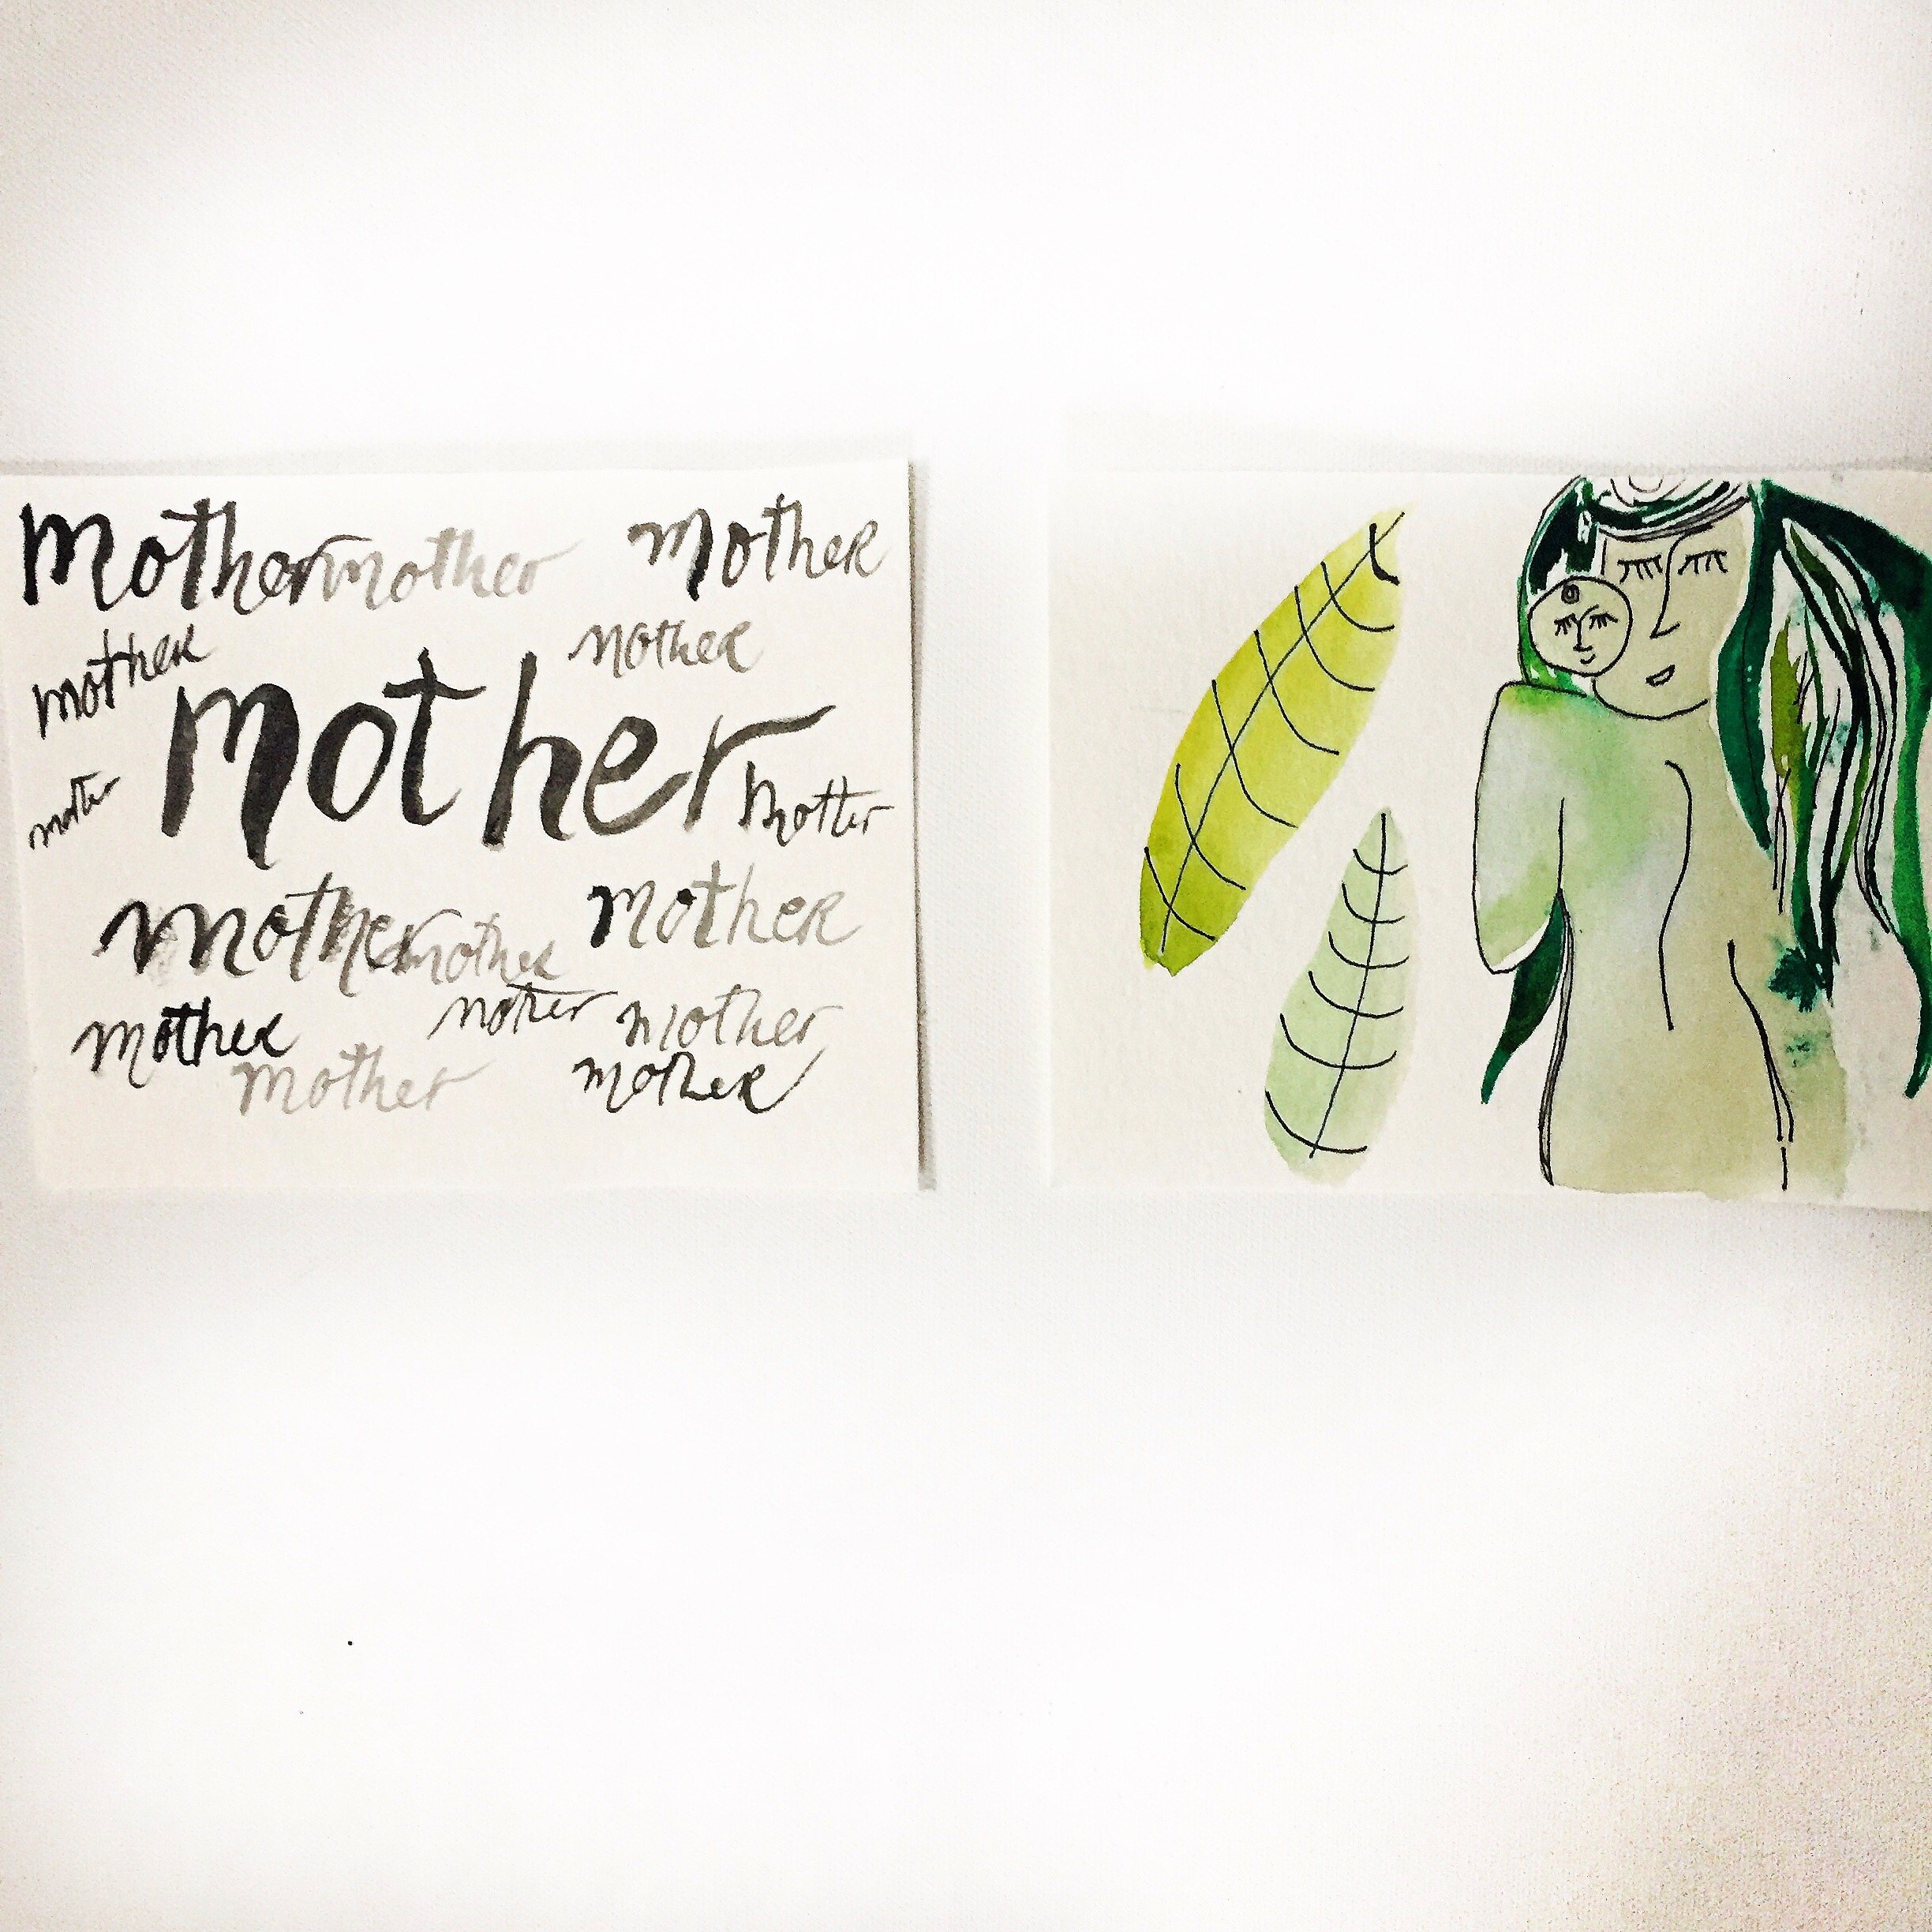 Mother mother mother
mother mother
mother
mother mother
mother mother
mother
mother mother mother
mother mother